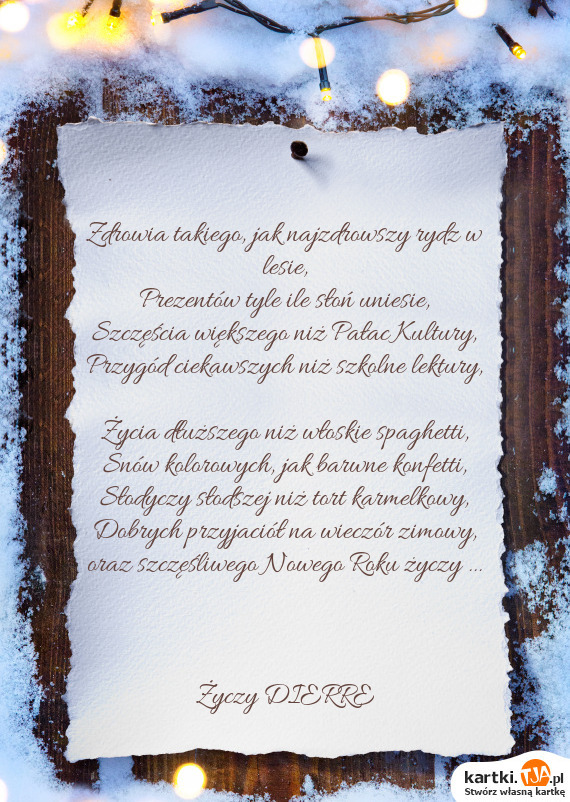 Zdrowia takiego, jak najzdrowszy rydz w
lesie,
Prezentów tyle ile słoń uniesie,
Szczęścia większego niż Pałac Kultury,
Przygód ciekawszych niż szkolne lektury,
Życia dłuższego niż włoskie spaghetti,
Snów kolorowych, jak barwne konfetti,
Słodyczy słodszej niż tort karmelkowy,
Dobrych przyjaciół na wieczór zimowy,
oraz szczęśliwego Nowego Roku życzy ...
Życzy DIERRE
kartki.TJA.pl
Stwórz własną kartkę